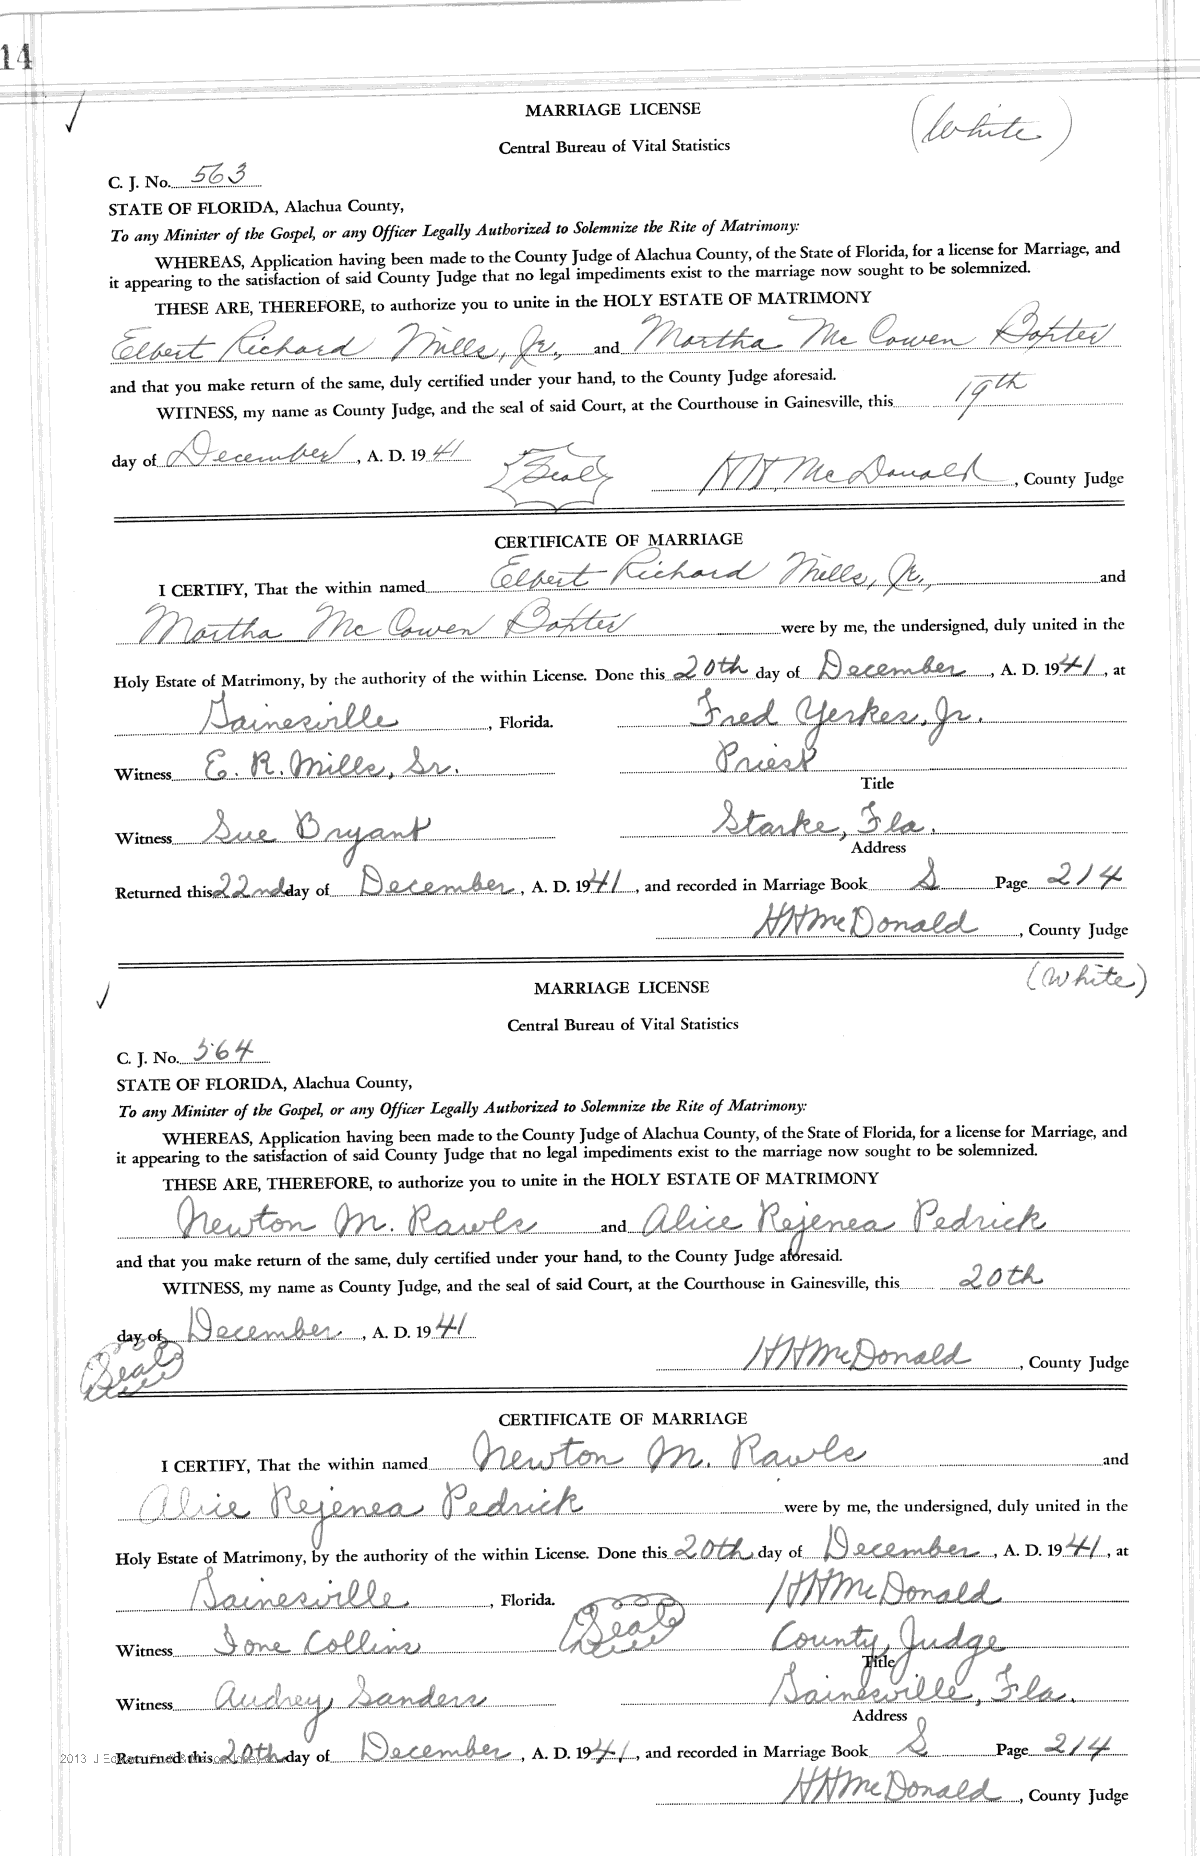 14
MARRIAGE LICENSE
(White)
Central Bureau of Vital Statistics
C. J. No. 563
STATE OF FLORIDA, Alachua County,
To any Minister of the Gospel, or any Officer Legally Authorized to Solemnize the Rite of Matrimony:
WHEREAS, Application having been made to the County Judge of Alachua County, of the State of Florida, for a license for Marriage, and
it appearing to the satisfaction of said County Judge that no legal impediments exist to the marriage now sought to be solemnized.
THESE ARE, THEREFORE, to authorize you to unite in the HOLY ESTATE OF MATRIMONY
Elbert Richard Mills, Jr., and Martha McCowen Baxter
and that you make return of the same, duly certified under your hand, to the County Judge aforesaid.
WITNESS, my name as County Judge, and the seal of said Court, at the Courthouse in Gainesville, this 19th
day of December, A. D. 1941 Seal HH McDonald, County Judge
CERTIFICATE OF MARRIAGE
I CERTIFY, That the within named Elbert Richard Mills, Jr., and
Martha McCowen Baxter were by me, the undersigned, duly united in the
Holy Estate of Matrimony, by the authority of the within License. Done this 20th day of December, A. D. 1941, at
Gainesville, Florida. Fred Yerkes, Jr.
Witness E. R. Mills, Sr. Priest
Title
Witness Sue Bryant Starke, Fla.
Address
Returned this 22nd day of December, A. D. 1941, and recorded in Marriage Book S Page 214
HH McDonald, County Judge
(White)
MARRIAGE LICENSE
Central Bureau of Vital Statistics
C. J. No. 564
STATE OF FLORIDA, Alachua County,
To any Minister of the Gospel, or any Officer Legally Authorized to Solemnize the Rite of Matrimony:
WHEREAS, Application having been made to the County Judge of Alachua County, of the State of Florida, for a license for Marriage, and
it appearing to the satisfaction of said County Judge that no legal impediments exist to the marriage now sought to be solemnized.
THESE ARE, THEREFORE, to authorize you to unite in the HOLY ESTATE OF MATRIMONY
Newton M. Rawls and Alice Rejenea Pedrick
and that you make return of the same, duly certified under your hand, to the County Judge aforesaid.
WITNESS, my name as County Judge, and the seal of said Court, at the Courthouse in Gainesville, this 20th
day of December, A. D. 1941
Seal HH McDonald, County Judge
CERTIFICATE OF MARRIAGE
I CERTIFY, That the within named Newton M. Rawls and
Alice Rejenea Pedrick were by me, the undersigned, duly united in the
Holy Estate of Matrimony, by the authority of the within License. Done this 20th day of December, A. D. 1941, at
Gainesville, Florida. Seal HH McDonald
Witness Ione Collins County Judge
Title
Witness Audrey Sanders Gainesville, Fla.
Address
2013 J
Returned this 20th day of December, A. D. 1941, and recorded in Marriage Book S Page 214
HH McDonald, County Judge